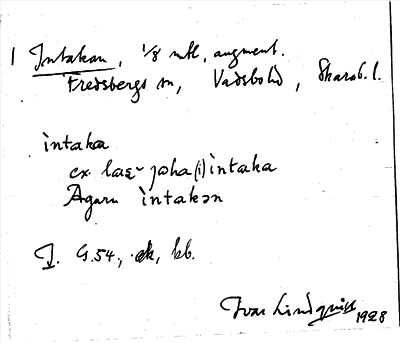 1 Intakan, 1/8 mtl, augment.
Fredsbergs sn, Vadsbo hd, Skarab. l.
ìntaka
ex. laɛ̮ jɔha(i) ìntaka
Ägaren ìntakən
I. G.54, ek, bb.
Ivar Lindquist
1928